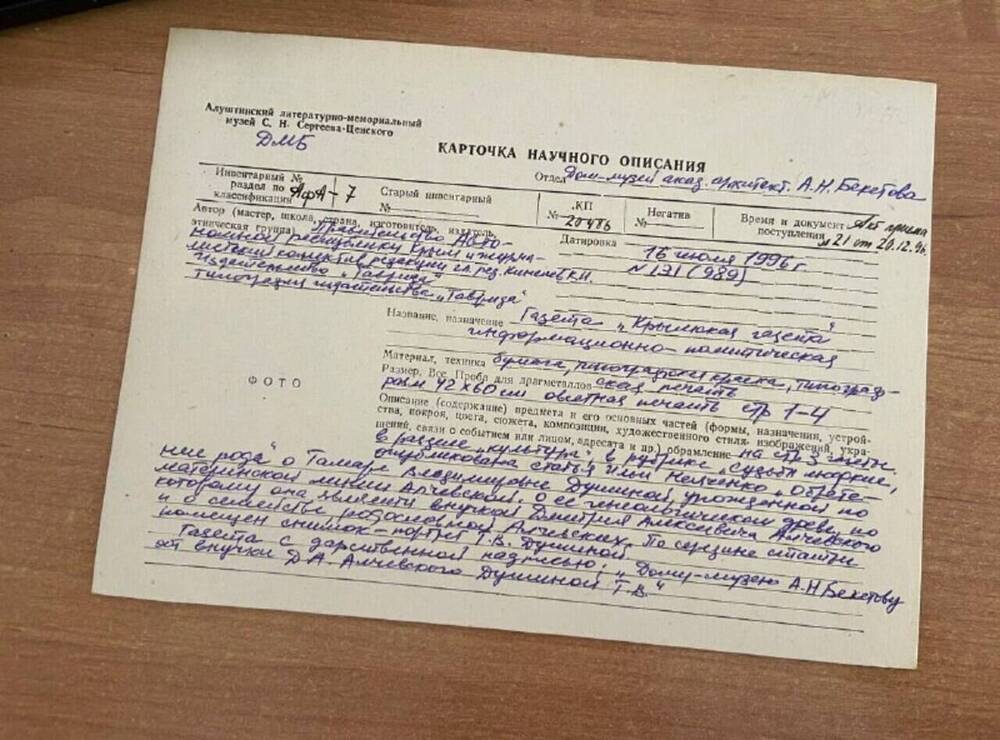 Алуштинский литературно-мемориальный
музей С. Н. Сергеева-Ценского
ДМБ
КАРТОЧКА НАУЧНОГО ОПИСАНИЯ
Отдел Дом-музей акад. архитект. А.Н. Бекетова
Инвентарный №
раздел по
классификации
АфА-7
Старый инвентарный
№
КП
№ 20486
Негатив
№
Время и документ Акт приема
поступления №21 от 20.12.96.
Автор (мастер, школа, страна, изготовитель, издатель,
этническая группа) Правительство Авто-
номной республики Крым и журна-
листский коллектив редакции гл. ред.
издательство „Таврида"
типография издательства „Таврида"
Датировка 16 июля 1996 г
№ 131 (989)
Название, назначение Газета „Крымская газета"
информационно-политическая
Материал, техника бумага, типографская краска, типограф-
Размер, Вес Проба для драгметаллов ская печать
разм 42х60 см цветная печать стр 1-4
Описание (содержание) предмета и его основных частей (формы, назначения, устрой-
ства, покроя, цвета, сюжета, композиции, художественного стиля- изображений, укра-
шений, связи о событием или лицом, адресата и др.) обрамление на стр 3 газеты,
в разделе „культура" в рубрике „Судьбы людские,
опубликована статья Нелли Немченко „Обрете-
ФОТО
ние рода" о Тамаре Владимировне Душиной, урожденной по
материнской линии Алчевской, о ее генеологическом древе, по
которому она является внучкой Дмитрия Алексеевича Алчевского
и о семействе родословной Алчевских. По середине статьи
помещен снимок-портрет Т.В. Душиной.
Газета с дарственной надписью: „Дому-музею А.Н Бекетову
от внучки Д.А. Алчевского Душиной Т.В."